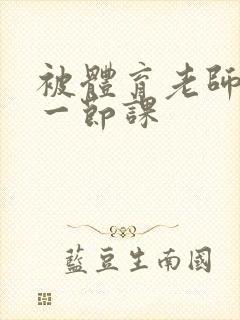 被體育老師
一節課
藍豆生南國